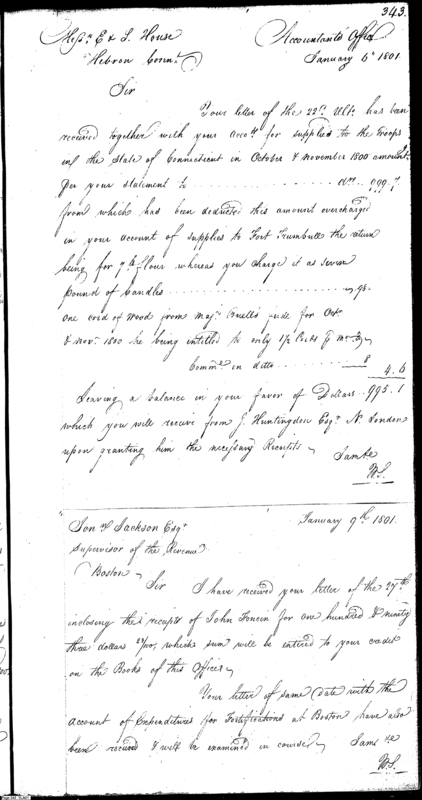 343.
Messrs. E & S. House
Accountants Office
Hebron Connt.
January 6th 1801.
Sir
Your letter of the 22d. Ulto. has been
received together with your Accots for supplies to the Troops
in the State of Connecticut in October & November 1800 amount:
per your statement to
from which has been deducted this amount overcharged
in your account of supplies to Fort Trumbull the return
being for 7 lb flour whereas you charge it as seven
pound of Candles
One cord of wood from Majr. guide for Octr.
& Novr. 1800 he being entitled to only 1 1/2 Cords
in ditto 8
4.6
Leaving a balance in your favor of Dollars 995.1
which you will receive from J. Huntingdon Esqr. N. London
upon granting him the necessary Receipts
I am &c
W.S.
Jonan. Jackson Esqr.
January 9th 1801.
Supervisor of the Revenue
Boston
Sir I have received your letter of the 27th
inclosing the receipts of John for one hundred & ninety
three dollars 27/100, which sum will be entered to your credit
on the Books of this Office
Your letter of same date with the
account of Expenditures for Fortifications at Boston have also
been received & will be examined in course I am &c
W.S.